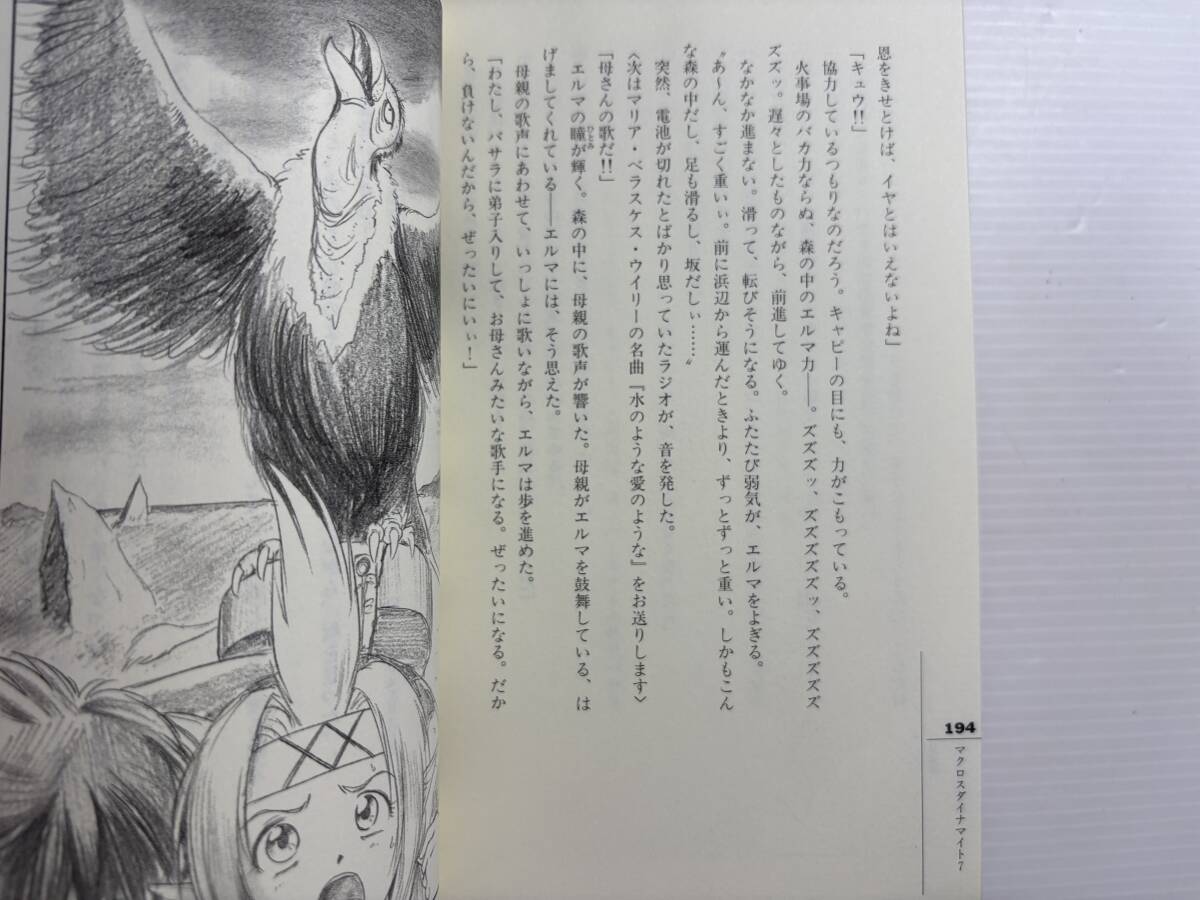 恩をきせとけば、イヤとはいえないよね」
「キュウ!!」
協力しているつもりなのだろう。キャピーの目にも、力がこもっている。
火事場のバカ力ならぬ、森の中のエルマ力――。ズズズッ、ズズズズズッ、ズズズズズ
ズズッ。遅々としたものながら、前進してゆく。
なかなか進まない。滑って、転びそうになる。ふたたび弱気が、エルマをよぎる。
〝あ～ん、すごく重いぃ。前に浜辺から運んだときより、ずっとずっと重い。しかもこん
な森の中だし、足も滑るし、坂だしぃ……〟
突然、電池が切れたとばかり思っていたラジオが、音を発した。
〈次はマリア・ベラスケス・ウイリーの名曲『水のような愛のような』をお送りします〉
「母さんの歌だ!!」
エルマの瞳ひとみが輝く。森の中に、母親の歌声が響いた。母親がエルマを鼓舞している、は
げましてくれている――エルマには、そう思えた。
母親の歌声にあわせて、いっしょに歌いながら、エルマは歩を進めた。
「わたし、バサラに弟子入りして、お母さんみたいな歌手になる。ぜったいになる。だか
ら、負けないんだから、ぜったいにいぃ！」
194
マクロスダイナマイト7